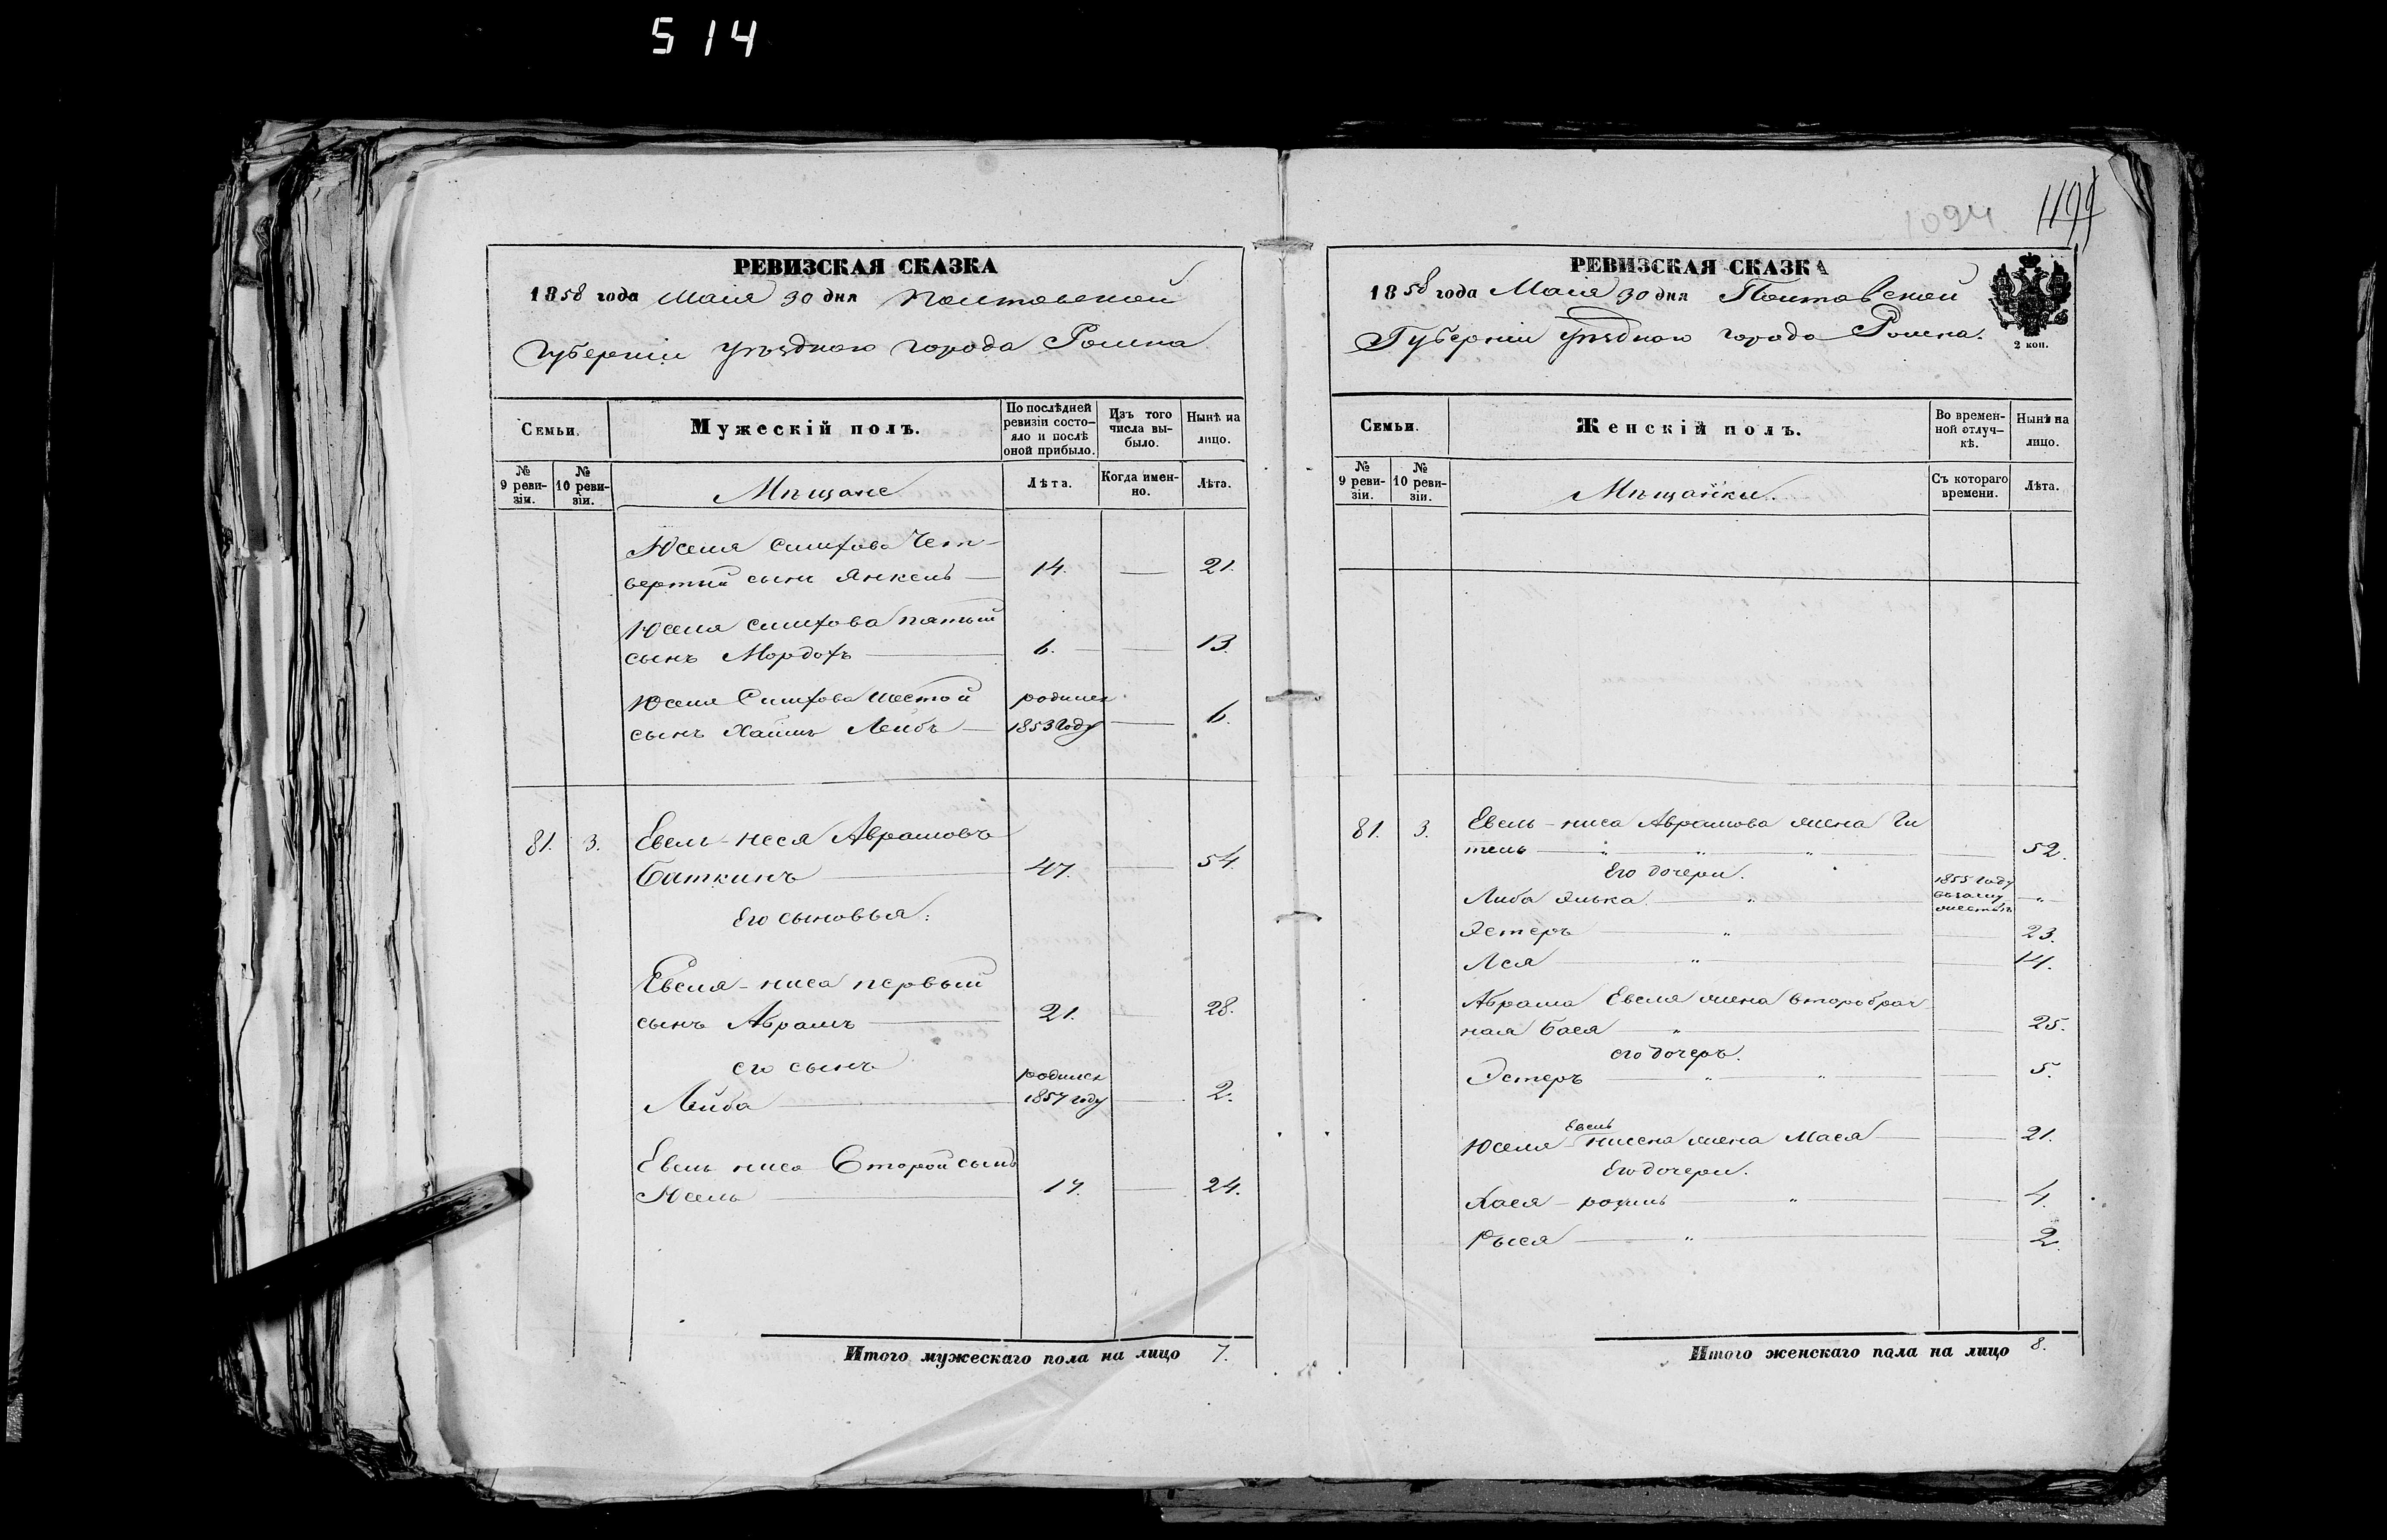 514
1094.
1199
РЕВИЗСКАЯ СКАЗКА
1858 года Маія 30 дня Полтавской
Губерніи уѣзднаго города Ромна
Семьи.
Мужескій полъ.
По послѣдней ревизіи состояло и послѣ оной прибыло.
Изъ того числа выбыло.
Нынѣ на лицо.
№ 9 ревизіи.
№ 10 ревизіи.
Мѣщане
Лѣта.
Когда именно.
Лѣта.
Юселя Симхова Чет-
вертый сынъ Янкель — 14. — 21.
Юселя Симхова пятый
сынъ Мордохъ — 6. — 13.
Юселя Симхова Шестой родился
сынъ Хаимъ Лейбъ — 1853 году — 6.
81. 3. Евель-неся Абрамовъ
Баткинъ — 47. — 54.
Его сыновья:
Евеля-ниса первый
сынъ Абрамъ — 21. — 28.
его сынъ родился
Лейба — 1857 году — 2.
Евель ниса Второй сынъ
Юсель — 17. — 24.
Итого мужескаго пола на лицо 7.
РЕВИЗСКАЯ СКАЗКА
1858 года Маія 30 дня Полтавской
Губерніи уѣзднаго города Ромна.
2 коп.
Семьи.
Женскій полъ.
Во временной отлучкѣ.
Нынѣ на лицо.
№ 9 ревизіи.
№ 10 ревизіи.
Мѣщанки.
Съ котораго времени.
Лѣта.
81. 3. Евель-ниса Абрамова жена Ги
тель — " " " — 52.
Его дочери.
1855 году
Либа Элька — " —
Эстеръ — " — 23.
Лея — " — 14.
Абрама Евеля жена второбрач
ная Бася — " — 25.
его дочеръ.
Эстеръ — " " — 5.
Евель
Юселя нисена жена Мася — 21.
Его дочери.
Хася - рохиль — " — 4.
Рыся — " — 2.
Итого женскаго пола на лицо 8.